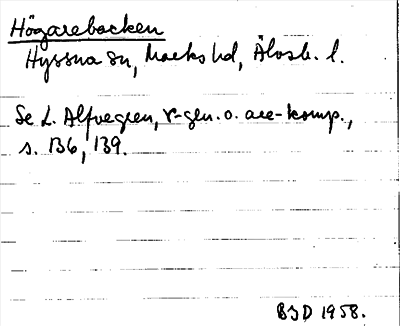 Högarebacken
Hyssna sn, Marks hd, Älvsb. l.
Se L. Alfvegren, r-gen. o. are-komp.,
s. 136, 139.
BJD 1958.